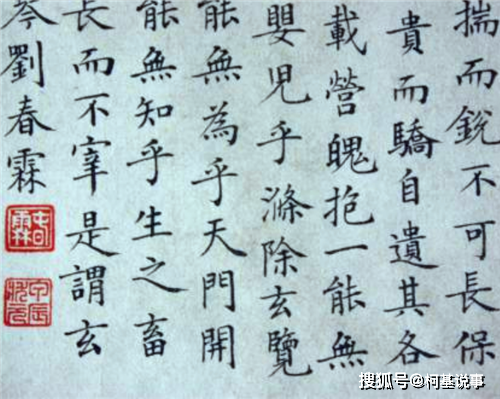 揣而銳不可長保
貴而驕自遺其各
載營魄抱一能無
嬰児乎滌除玄覽
能無為乎天門開
能無知乎生之畜
長而不宰是謂玄
岑劉春霖
春霖
甲辰狀元
搜狐号@柯基说事